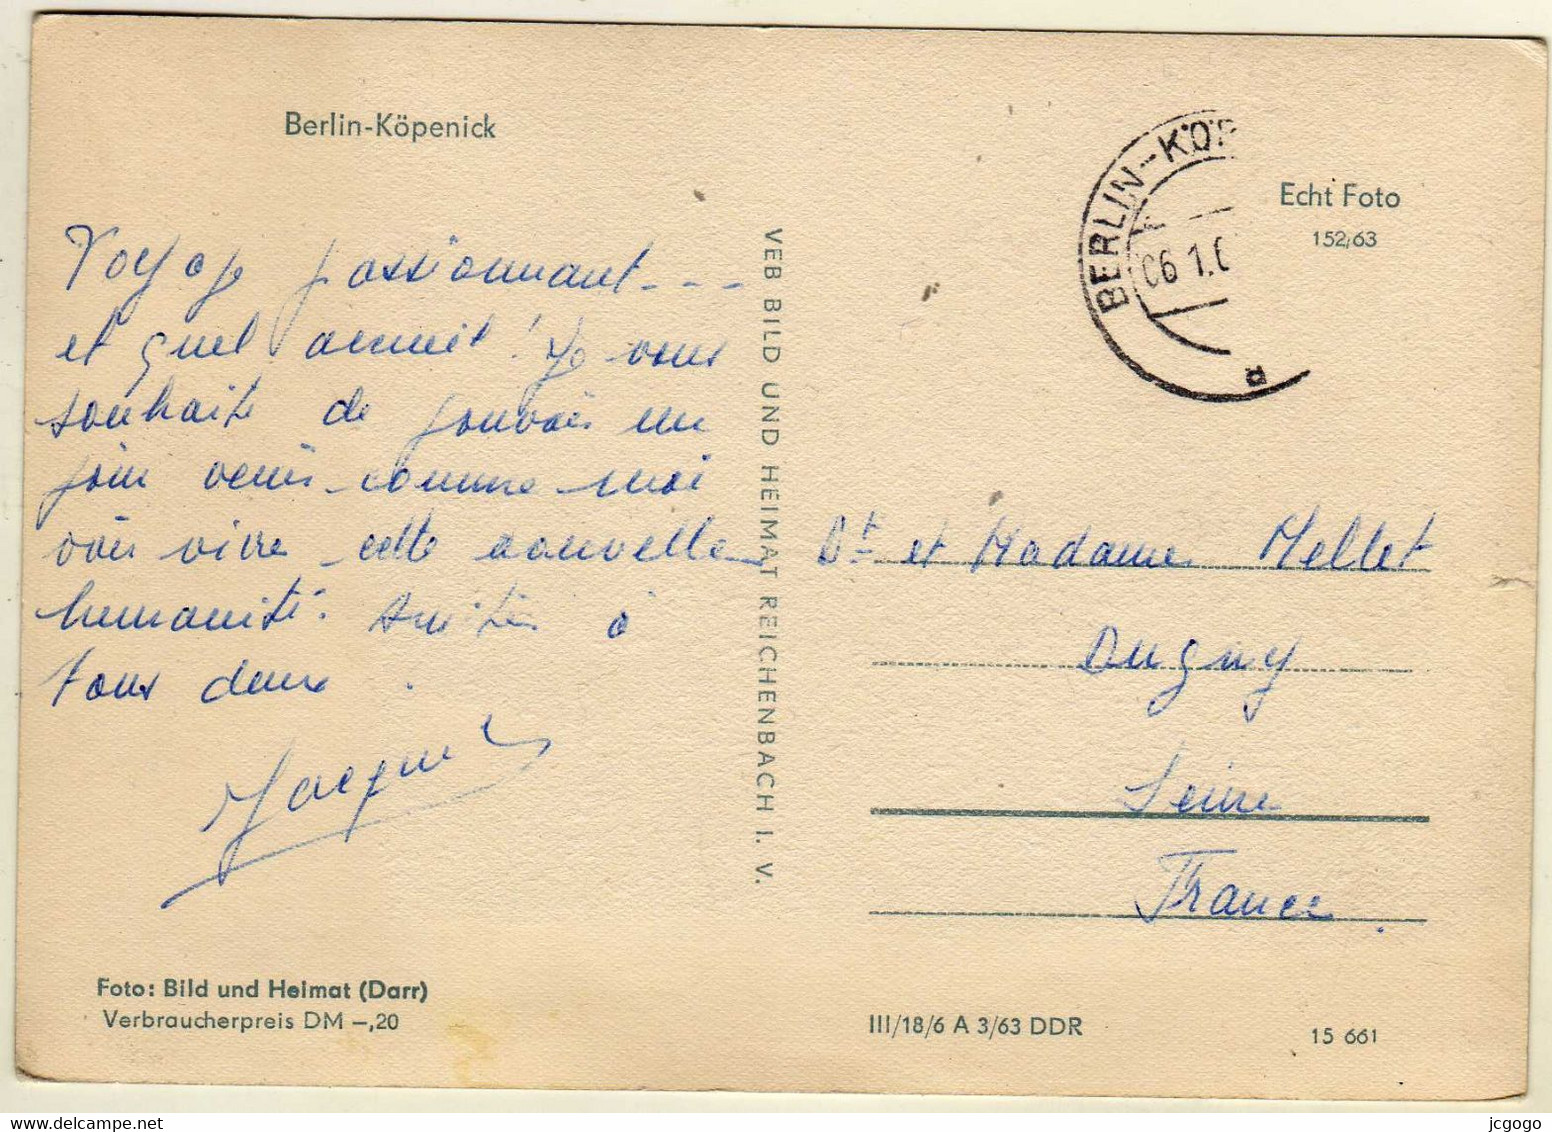 Berlin-Köpenick
Voyage passionnant - - -
et quel accueil ! Je vous
souhaite de pouvoir un
jour venir comme moi
voir vivre cette nouvelle
humanité. Amitiés à
tous deux.
Jacques
Foto: Bild und Heimat (Darr)
Verbraucherpreis DM –,20
VEB BILD UND HEIMAT REICHENBACH I. V.
BERLIN-KÖP
06 1.6
Echt Foto
152/63
Dr et Madame Mellet
Dugny
Seine
France.
III/18/6 A 3/63 DDR
15 661
jcgogo